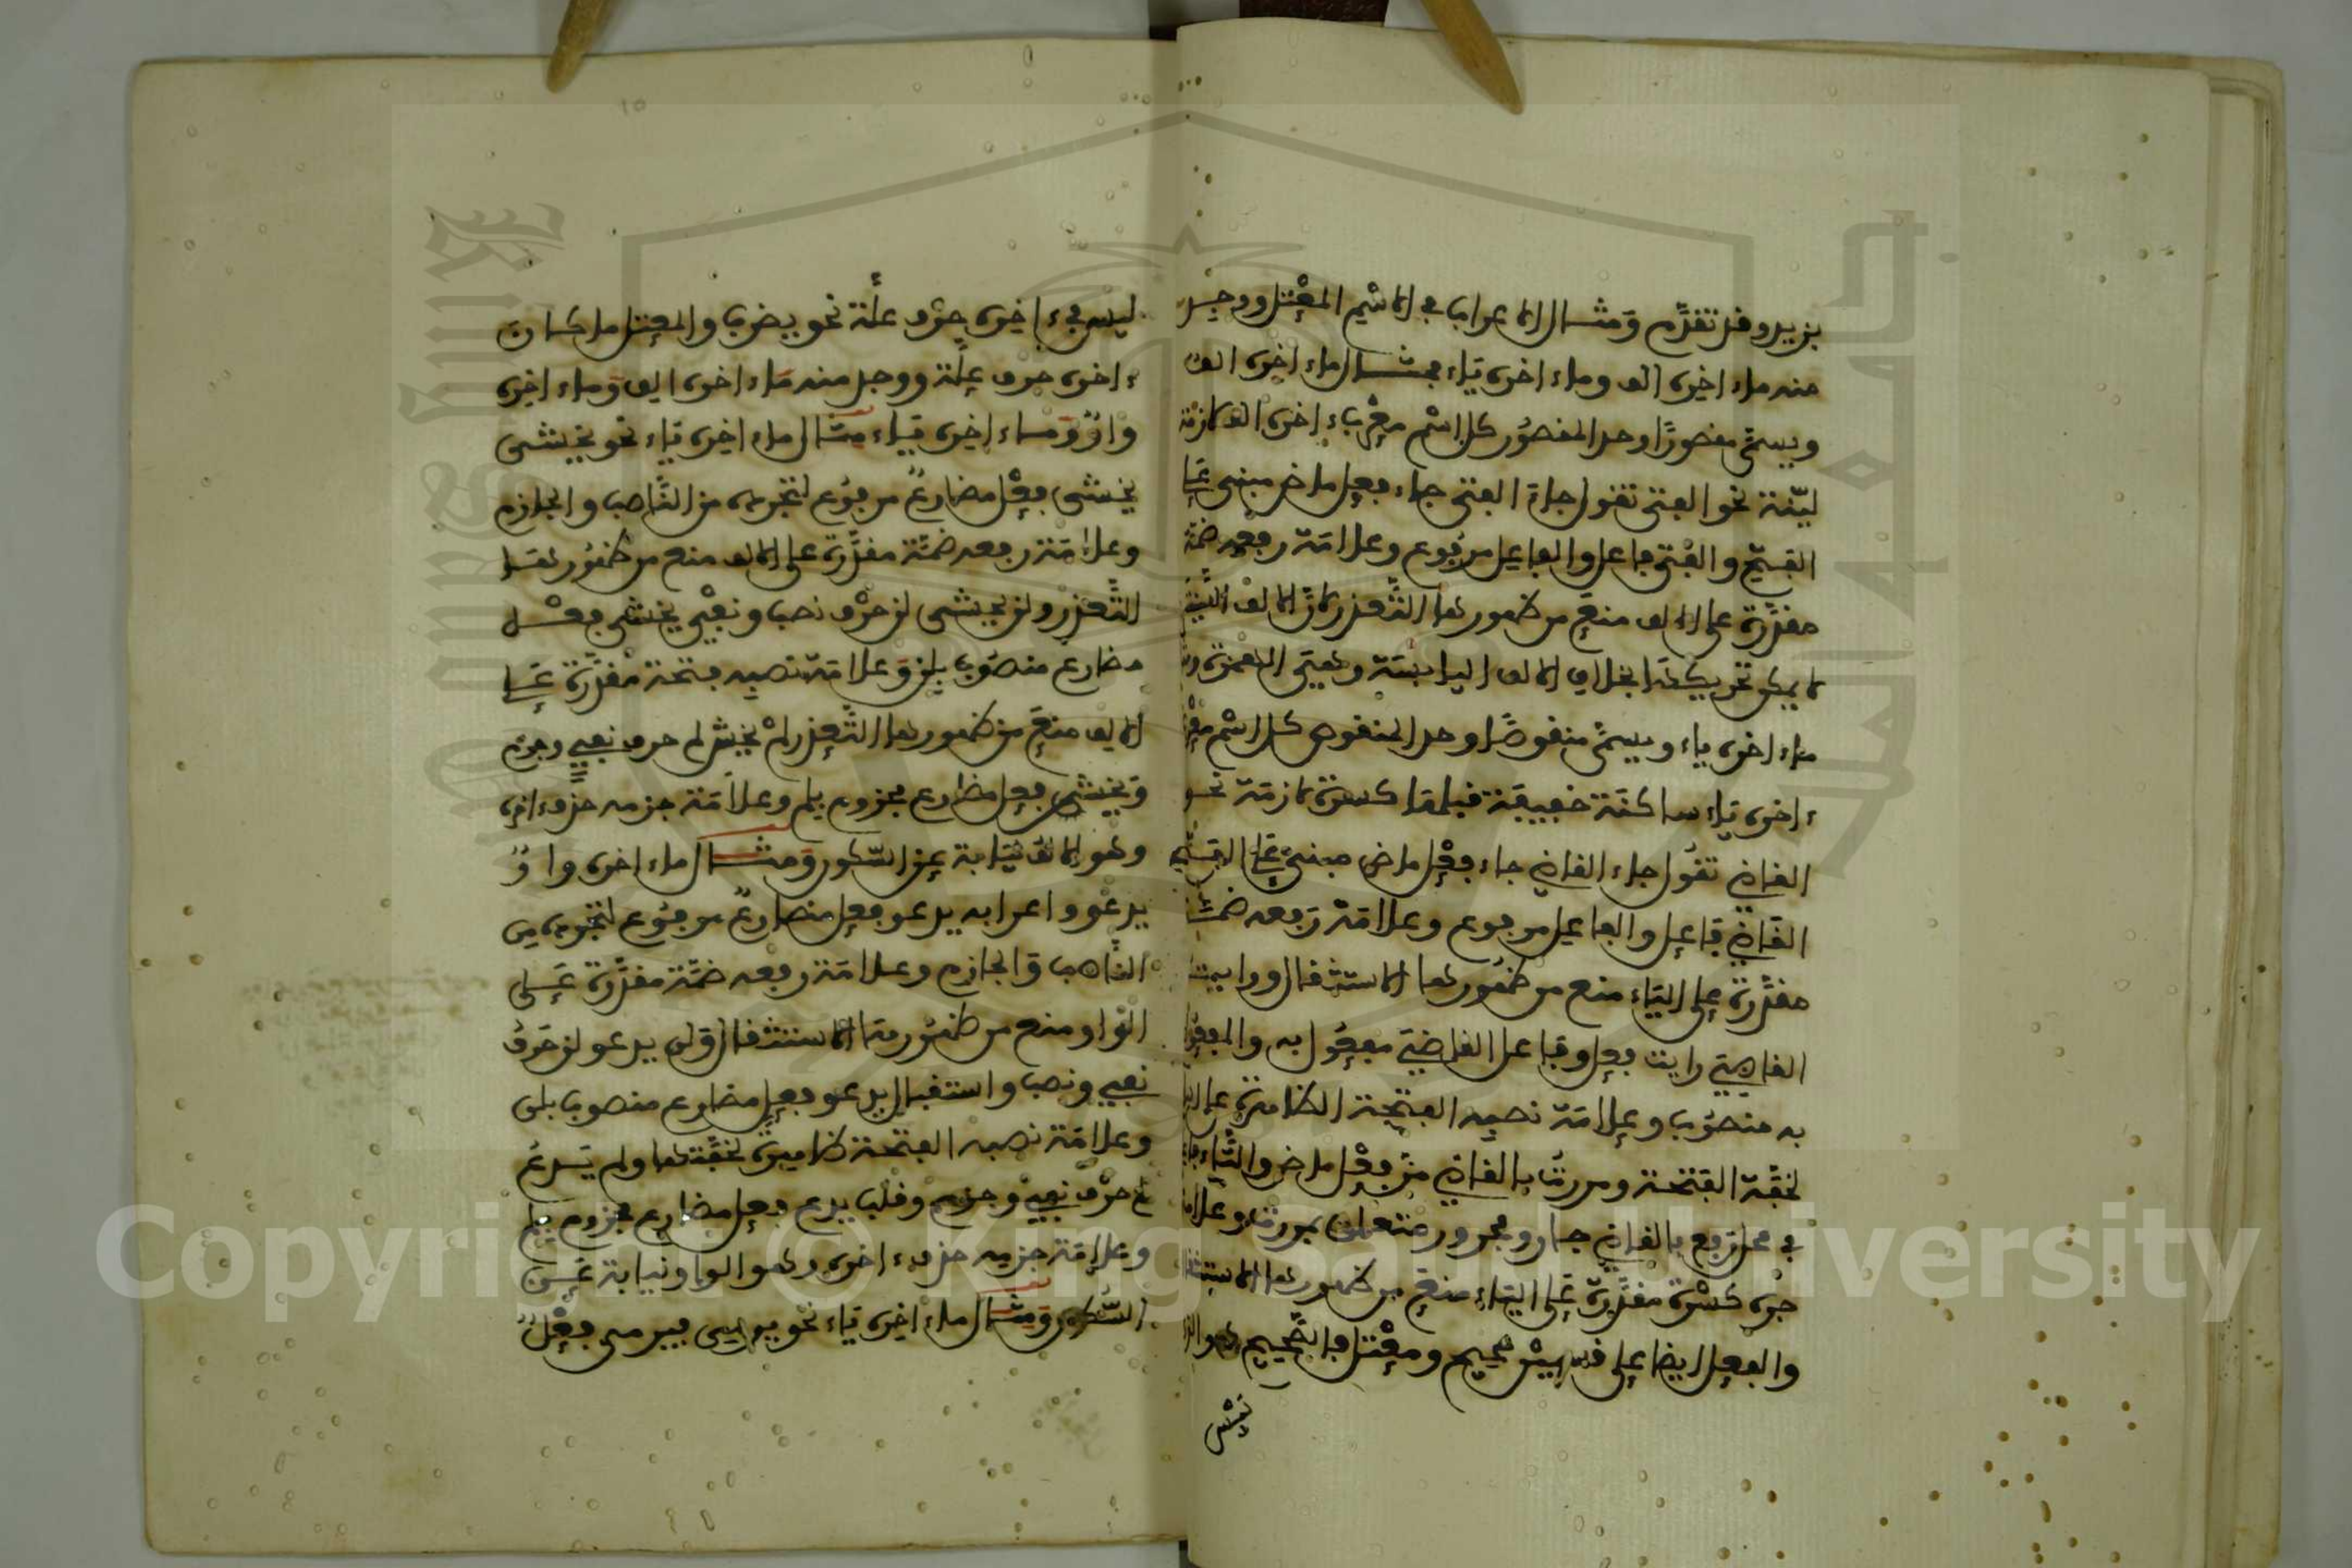 بزيد وقد تقدَّم وَمثال الاعراب في الاسْم المعْتل ووجد
منه ماء اخره الف وماء اخره يَاء فمثال ماء اخره الف
ويسمَّى مقصورًا وحد المقصُور كل اسْم معْرب ءاخره الف لازمة
ليّنة نحو الفتى تقول جاء الفتى جاء فعل ماض مبني عَلى
الفتح والفتى فاعل والفاعل مرفُوع وعلامَة رفعه ضمّة
مقدَّرة على الالف منعَ من ظهورها التَّعذر لانَّ الالف اللينة
لا يمكن تحريكها بخلاف الالف اليابسَة وهيَ الهمزة
ماء اخره ياء ويسمَّى منقوصًا وحد المنقوص كل اسْم
ءاخره يَاء ساكنَة خفيفَة قبلها كسرة لازمَة نحو
القاضي تقُول جاء القاضي جاء فعْل ماض مبنيّ عَلى الفتح
القَاضي فَاعل والفاعل مرفوع وعلامَة رَفعه ضمَّة
مقدَّرة على اليَاء منع من ظهُورها الاستثقال ورايت
القاضيَ رايت فعل وفاعل القاضيَ مفعُول به والمفعُول
به منصُوب وعلامَة نصبه الفتحة الظاهرة على اليا
لخفَّة الفتحة ومررتُ بالقاضي مرَّ فعْل ماض والتَّاء
في محل رفع بالقاضي جار ومجرور متعلق بمررت وعلامة
جره كسْرة مقدَّرة عَلى اليَاء منعَ من ظهورها الاستثقا
والفعل ايضا على قسميْن صحيح ومعْتل فالصَّحيح هو الذ
ليس
ليس في ءاخره حرْف علَّة نحو يضرب والمعتل ما كان
ءاخره حرف علّة ووجد منه مَاء اخره الف وَماء اخره
واوٌ وَماء اخره يَاء مثال ماء اخره يَاء نحو يخشى
يخشى فعْل مضارعٌ مرفوُع لتجرده من النَّاصب والجازم
وعلامَة رفعه ضمَّة مقدَّرة على الالف منع من ظهُورها
التَّعذر ولن يخشى لن حرْف نصب ونفْي يخشى فعْل
مضارع منصُوب بلن وَعلامَة نصبه فتحة مقدَّرة عَلى
الالف منعَ من ظهورها التَّعذر لمْ يخش لم حرف نفي وجزم
وَيخشى فعل مضارع مجزوم بلم وعلامَة جزمه حذف ءاخره
وهو الالف نيَابة عن السّكون وَمثال ماء اخره واوٌ
يدعُو واعرابه يدعو فعل مضارعٌ مرفُوع لتجرده من
النَّاصب وَالجازم وعلامَة رفعه ضمَّة مقدَّرة عَلى
الوَاو منع من ظهُورها الاستثقال وَلن يدعو لن حَرفُ
نفي ونصب واستقبال يدعو فعل مضارع منصوب بلن
وعلامَة نصبه الفتحة ظاهرة لخفَّتها ولم يَدعُ
لم حرْف نفيْ وجزم وقلب يدع فعل مضارع مجزوم بلم
وعلامَة جزمه حذف ءاخره وهو الواو نيابة عَن
السُّكون وَمثال ماء اخره يَاء نحو يرمي يرمى فعْلٌ